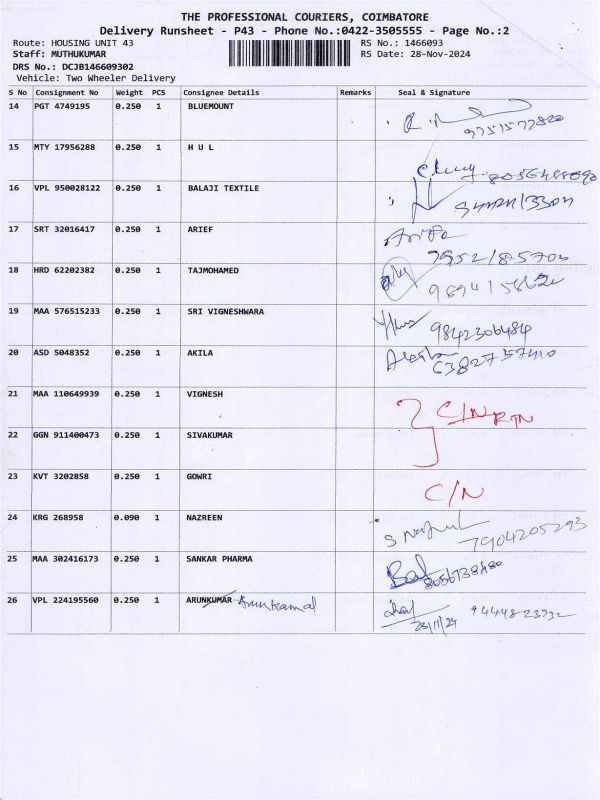 THE PROFESSIONAL COURIERS, COIMBATORE
Delivery Runsheet - P43 - Phone No.:0422-3505555 - Page No.:2
Route: HOUSING UNIT 43 RS No.: 1466093
Staff: MUTHUKUMAR RS Date: 28-Nov-2024
DRS No.: DCJB146609302
Vehicle: Two Wheeler Delivery
S No Consignment No Weight PCS Consignee Details Remarks Seal & Signature
14 PGT 4749195 0.250 1 BLUEMOUNT
9751577820
15 MTY 17956288 0.250 1 H U L
16 VPL 950028122 0.250 1 BALAJI TEXTILE
17 SRT 32016417 0.250 1 ARIEF
18 HRD 62202382 0.250 1 TAJMOHAMED
19 MAA 576515233 0.250 1 SRI VIGNESHWARA
9842306484
20 ASD 5048352 0.250 1 AKILA
21 MAA 110649939 0.250 1 VIGNESH
C/N RTN
22 GGN 911400473 0.250 1 SIVAKUMAR
23 KVT 3202858 0.250 1 GOWRI
C/N
24 KRG 268958 0.090 1 NAZREEN
7904205293
25 MAA 302416173 0.250 1 SANKAR PHARMA
8056738480
26 VPL 224195560 0.250 1 ARUNKUMAR Arunkamal
28/11/24